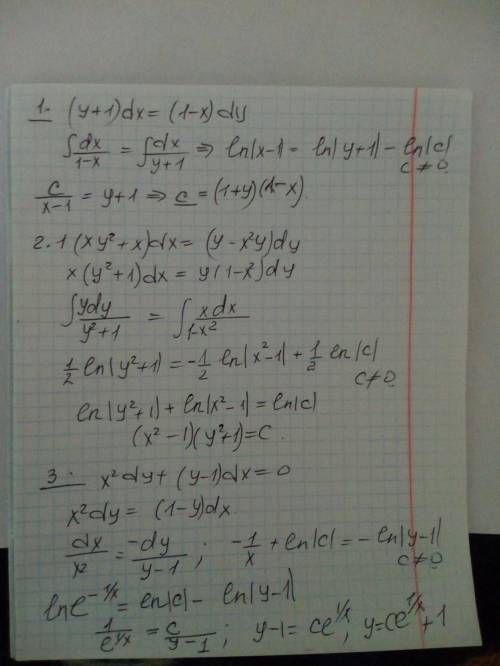 1. (y+1)dx = (1-x)dy
∫dx/1-x = ∫dx/y+1 ⇒ ln|x-1| = ln|y+1| - ln|c|
c≠0
c/x-1 = y+1 ⇒ c = (1+y)(1-x).
2.1 (xy²+x)dx = (y-x²y)dy
x(y²+1)dx = y(1-x²)dy
∫ydy/y²+1 = ∫xdx/1-x²
1/2 ln|y²+1| = -1/2 ln|x²-1| + 1/2 ln|c|
c≠0
ln|y²+1| + ln|x²-1| = ln|c|
(x²-1)(y²+1)=C.
3. x²dy + (y-1)dx = 0
x²dy = (1-y)dx
dx/x² = -dy/y-1 ; -1/x + ln|c| = -ln|y-1|
c≠0
ln e^-1/x = ln|c| - ln|y-1|
1/e^1/x = c/y-1 ; y-1 = ce^1/x ; y = ce^1/x + 1